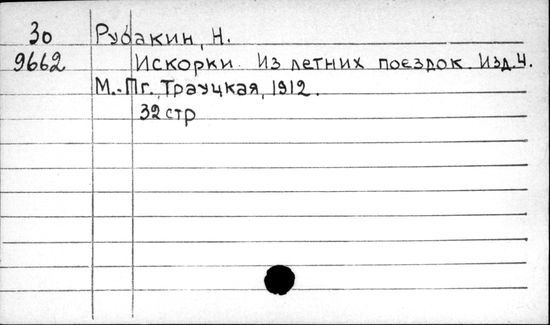 30 Рубакин, Н.
9662 Искорки. Из летних поездок. Изд. 4.
М.-Пг., Трауцкая, 1912.
32 стр